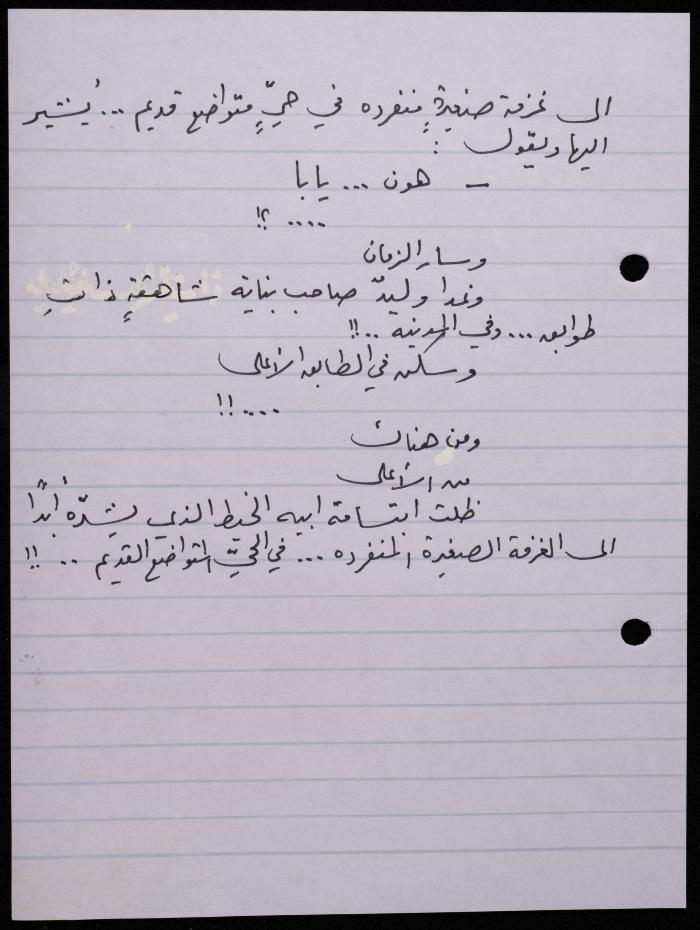 الى غرفة صغيرةٍ منفرده في حيٍّ متواضع قديم ... يُشير
اليها ويقول :
— هون ... يابا
.... ؟!
وسار الزمان
وغدا وليدّ صاحب بناية شاهقةٍ ذاتِ
طوابق ... وفي المدينه ..!!
وسكن في الطابق الأعلى
....!!
ومن هناك
من الأعلى
ظلت ابتسامة ابيه الخيط الذي يشدّهُ أبدًا
الى الغرفة الصغيرة المنفرده ... في الحيّ المتواضع القديم .. !!